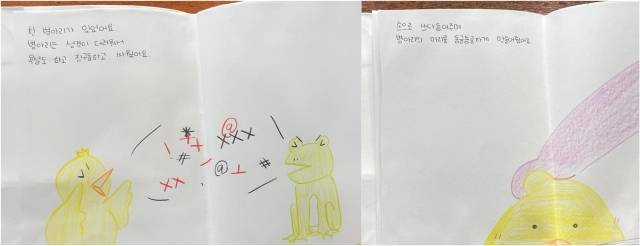 한 병아리가 있었어요.
병아리는 성격이 더러워서
욕설도 하고 친구들하고 싸웠어요.
손으로 쓰다듬어주며
병아리의 머리를 동글동글하게 만들어줬어요.